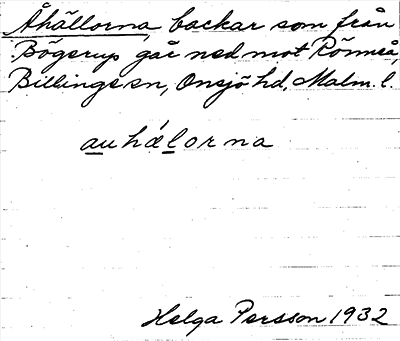 Åhällorna, backar som från
Bögerup går ned mot Rönneå,
Billinge sn, Onsjö hd, Malm. l.
auhálorna
Helga Persson 1932